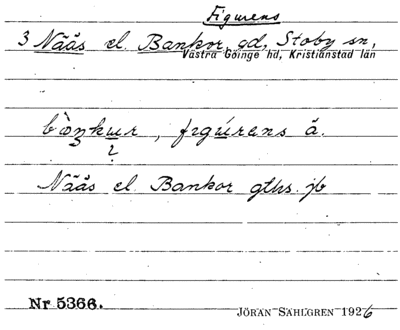 Figurens
3 Nääs el. Bankor, gd, Stoby sn,
Västra Göinge hd, Kristianstad län
figúrens å.
Nääs el. Bankor gths. jb
Nr 5366.
JÖRAN SAHLGREN 1926